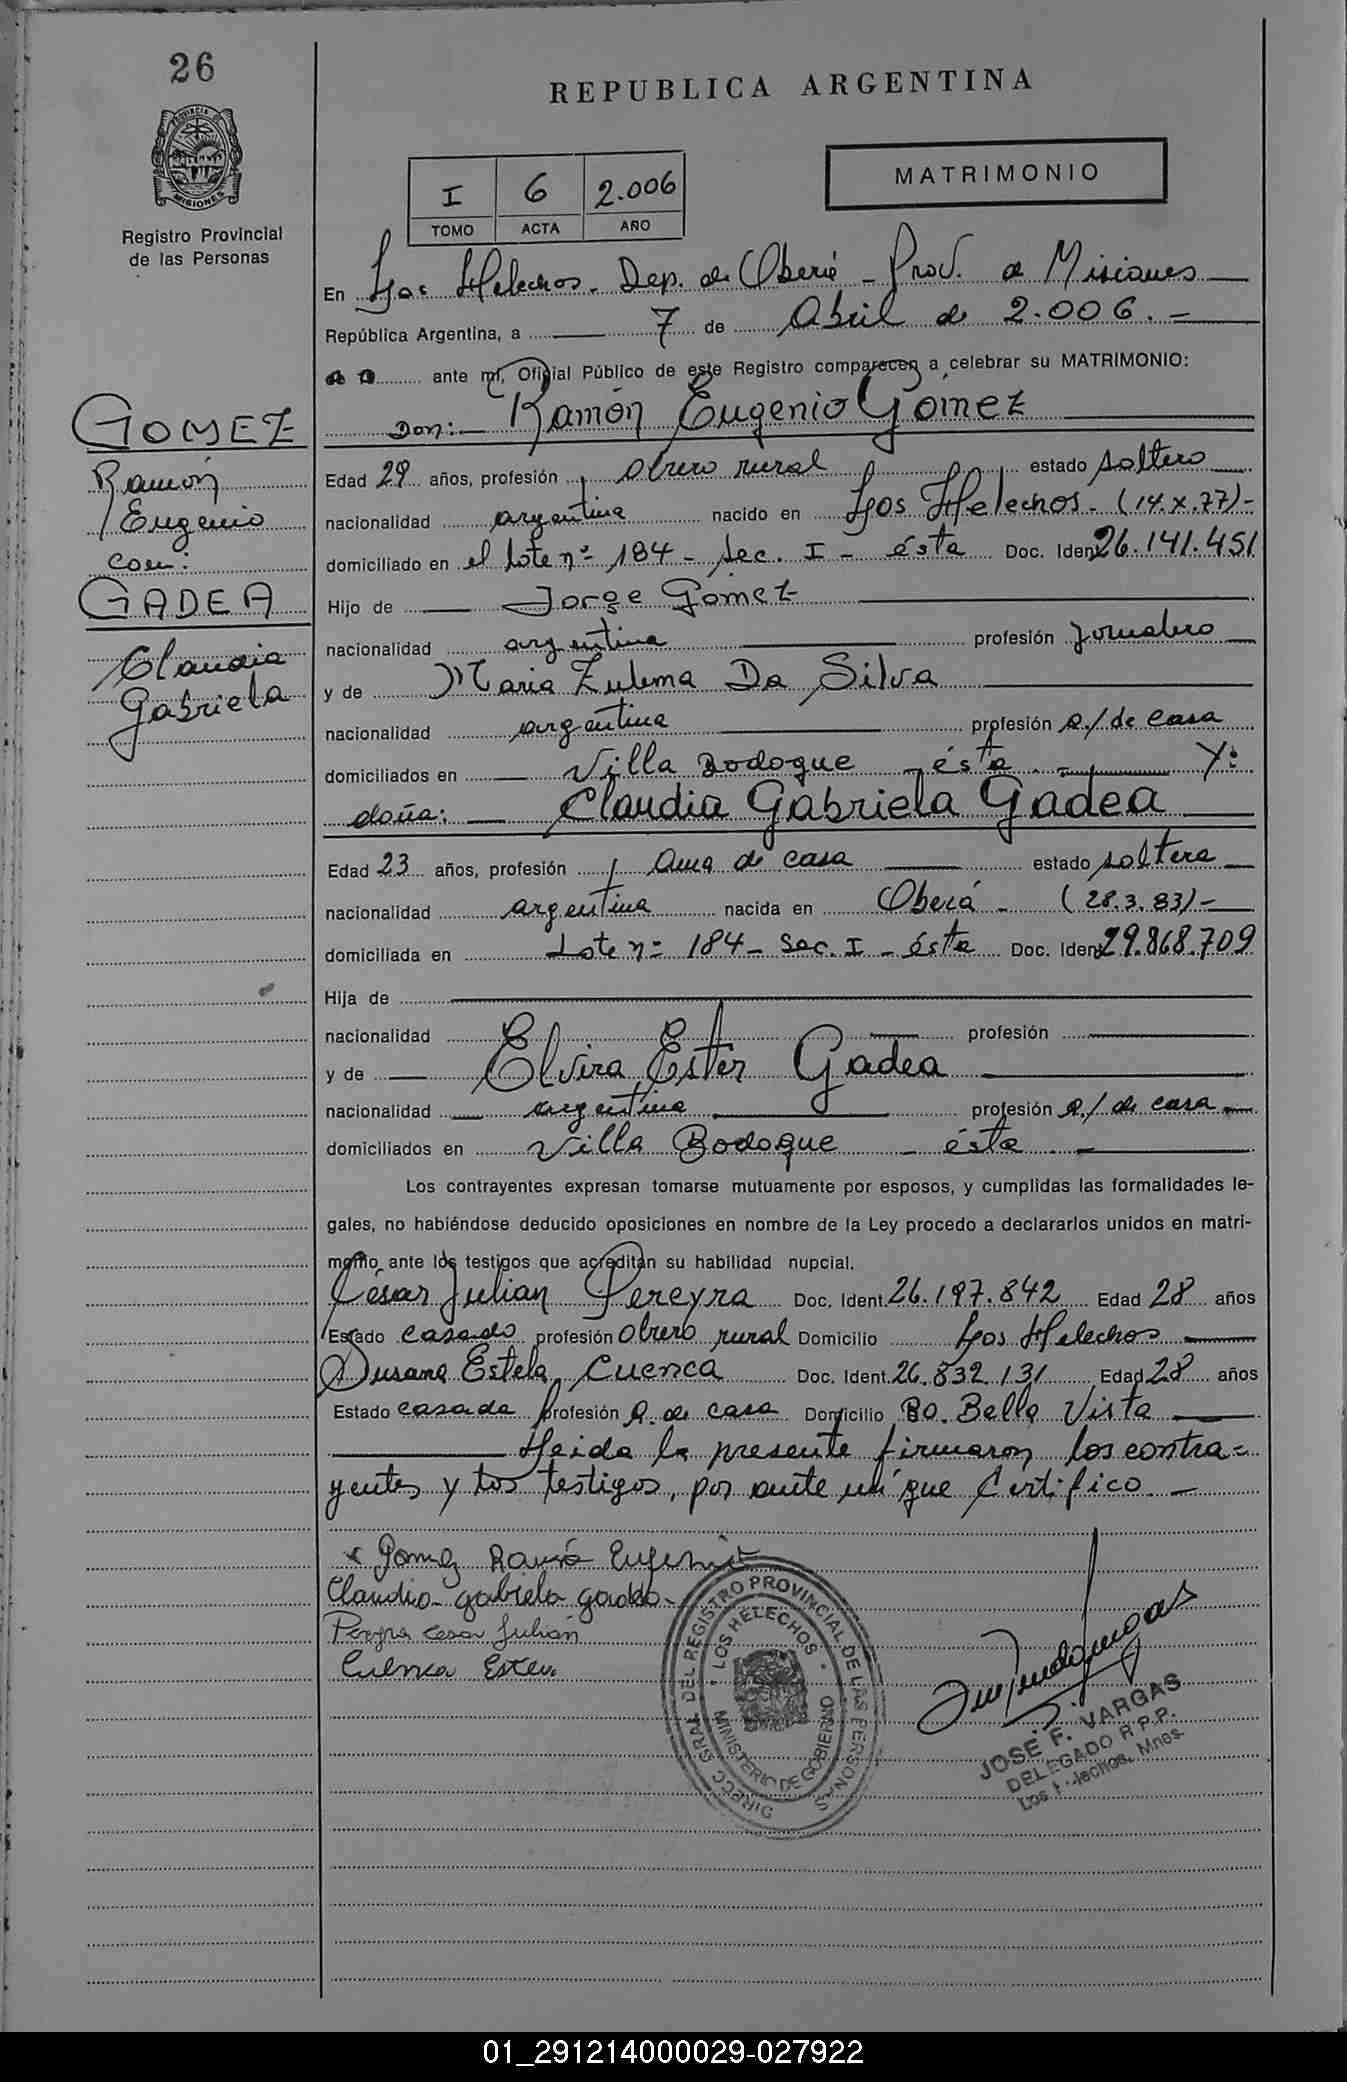 26
REPUBLICA ARGENTINA
PROVINCIA DE
MISIONES
Registro Provincial
de las Personas
MATRIMONIO
I 6 2.006
TOMO ACTA AÑO
En Los Helechos. Dep. de Oberá - Prov. de Misiones
República Argentina, a 7 de Abril de 2.006.-
ante mí, Oficial Público de este Registro comparecen a celebrar su MATRIMONIO:
GOMEZ
Ramón
Eugenio
con:
GADEA
Claudia
Gabriela
Don: Ramón Eugenio Gómez
Edad 29 años, profesión obrero rural estado soltero
nacionalidad argentina nacido en Los Helechos. (14.X.77)-
domiciliado en el Lote nº 184 - Sec. I - ésta Doc. Ident 26.141.451
Hijo de Jorge Gómez
nacionalidad argentina profesión Jornalero
y de Maria Zulema Da Silva
nacionalidad argentina profesión a./de casa
domiciliados en Villa Bodoque - ésta.- Y:
doña: Claudia Gabriela Gadea
Edad 23 años, profesión ama de casa estado soltera
nacionalidad argentina nacida en Oberá - (28.3.83)-
domiciliada en Lote nº 184 - Sec. I - ésta Doc. Ident 29.868.709
Hija de
nacionalidad profesión
y de Elvira Ester Gadea
nacionalidad argentina profesión a./ de casa
domiciliados en Villa Bodoque - ésta.-
Los contrayentes expresan tomarse mutuamente por esposos, y cumplidas las formalidades le-
gales, no habiéndose deducido oposiciones en nombre de la Ley procedo a declararlos unidos en matri-
monio ante los testigos que acreditan su habilidad nupcial.
César Julian Pereyra Doc. Ident. 26.197.842 Edad 28 años
Estado casado profesión obrero rural Domicilio Los Helechos
Susana Estela Cuenca Doc. Ident. 26.832.131 Edad 28 años
Estado casada profesión a. de casa Domicilio Bo. Bella Vista
Leida la presente firmaron los contra=
yentes y los testigos, por ante mí que Certifico.-
x Gomez Ramón Eugenio
Claudia gabriela gadea
Pereyra Cesar Julian
Cuenca Estela
DIRECC. GRAL. DEL REGISTRO PROVINCIAL DE LAS PERSONAS
LOS HELECHOS
MINISTERIO DE GOBIERNO
JOSE F. VARGAS
DELEGADO R.P.P.
Los Helechos, Mnes.
01_291214000029-027922